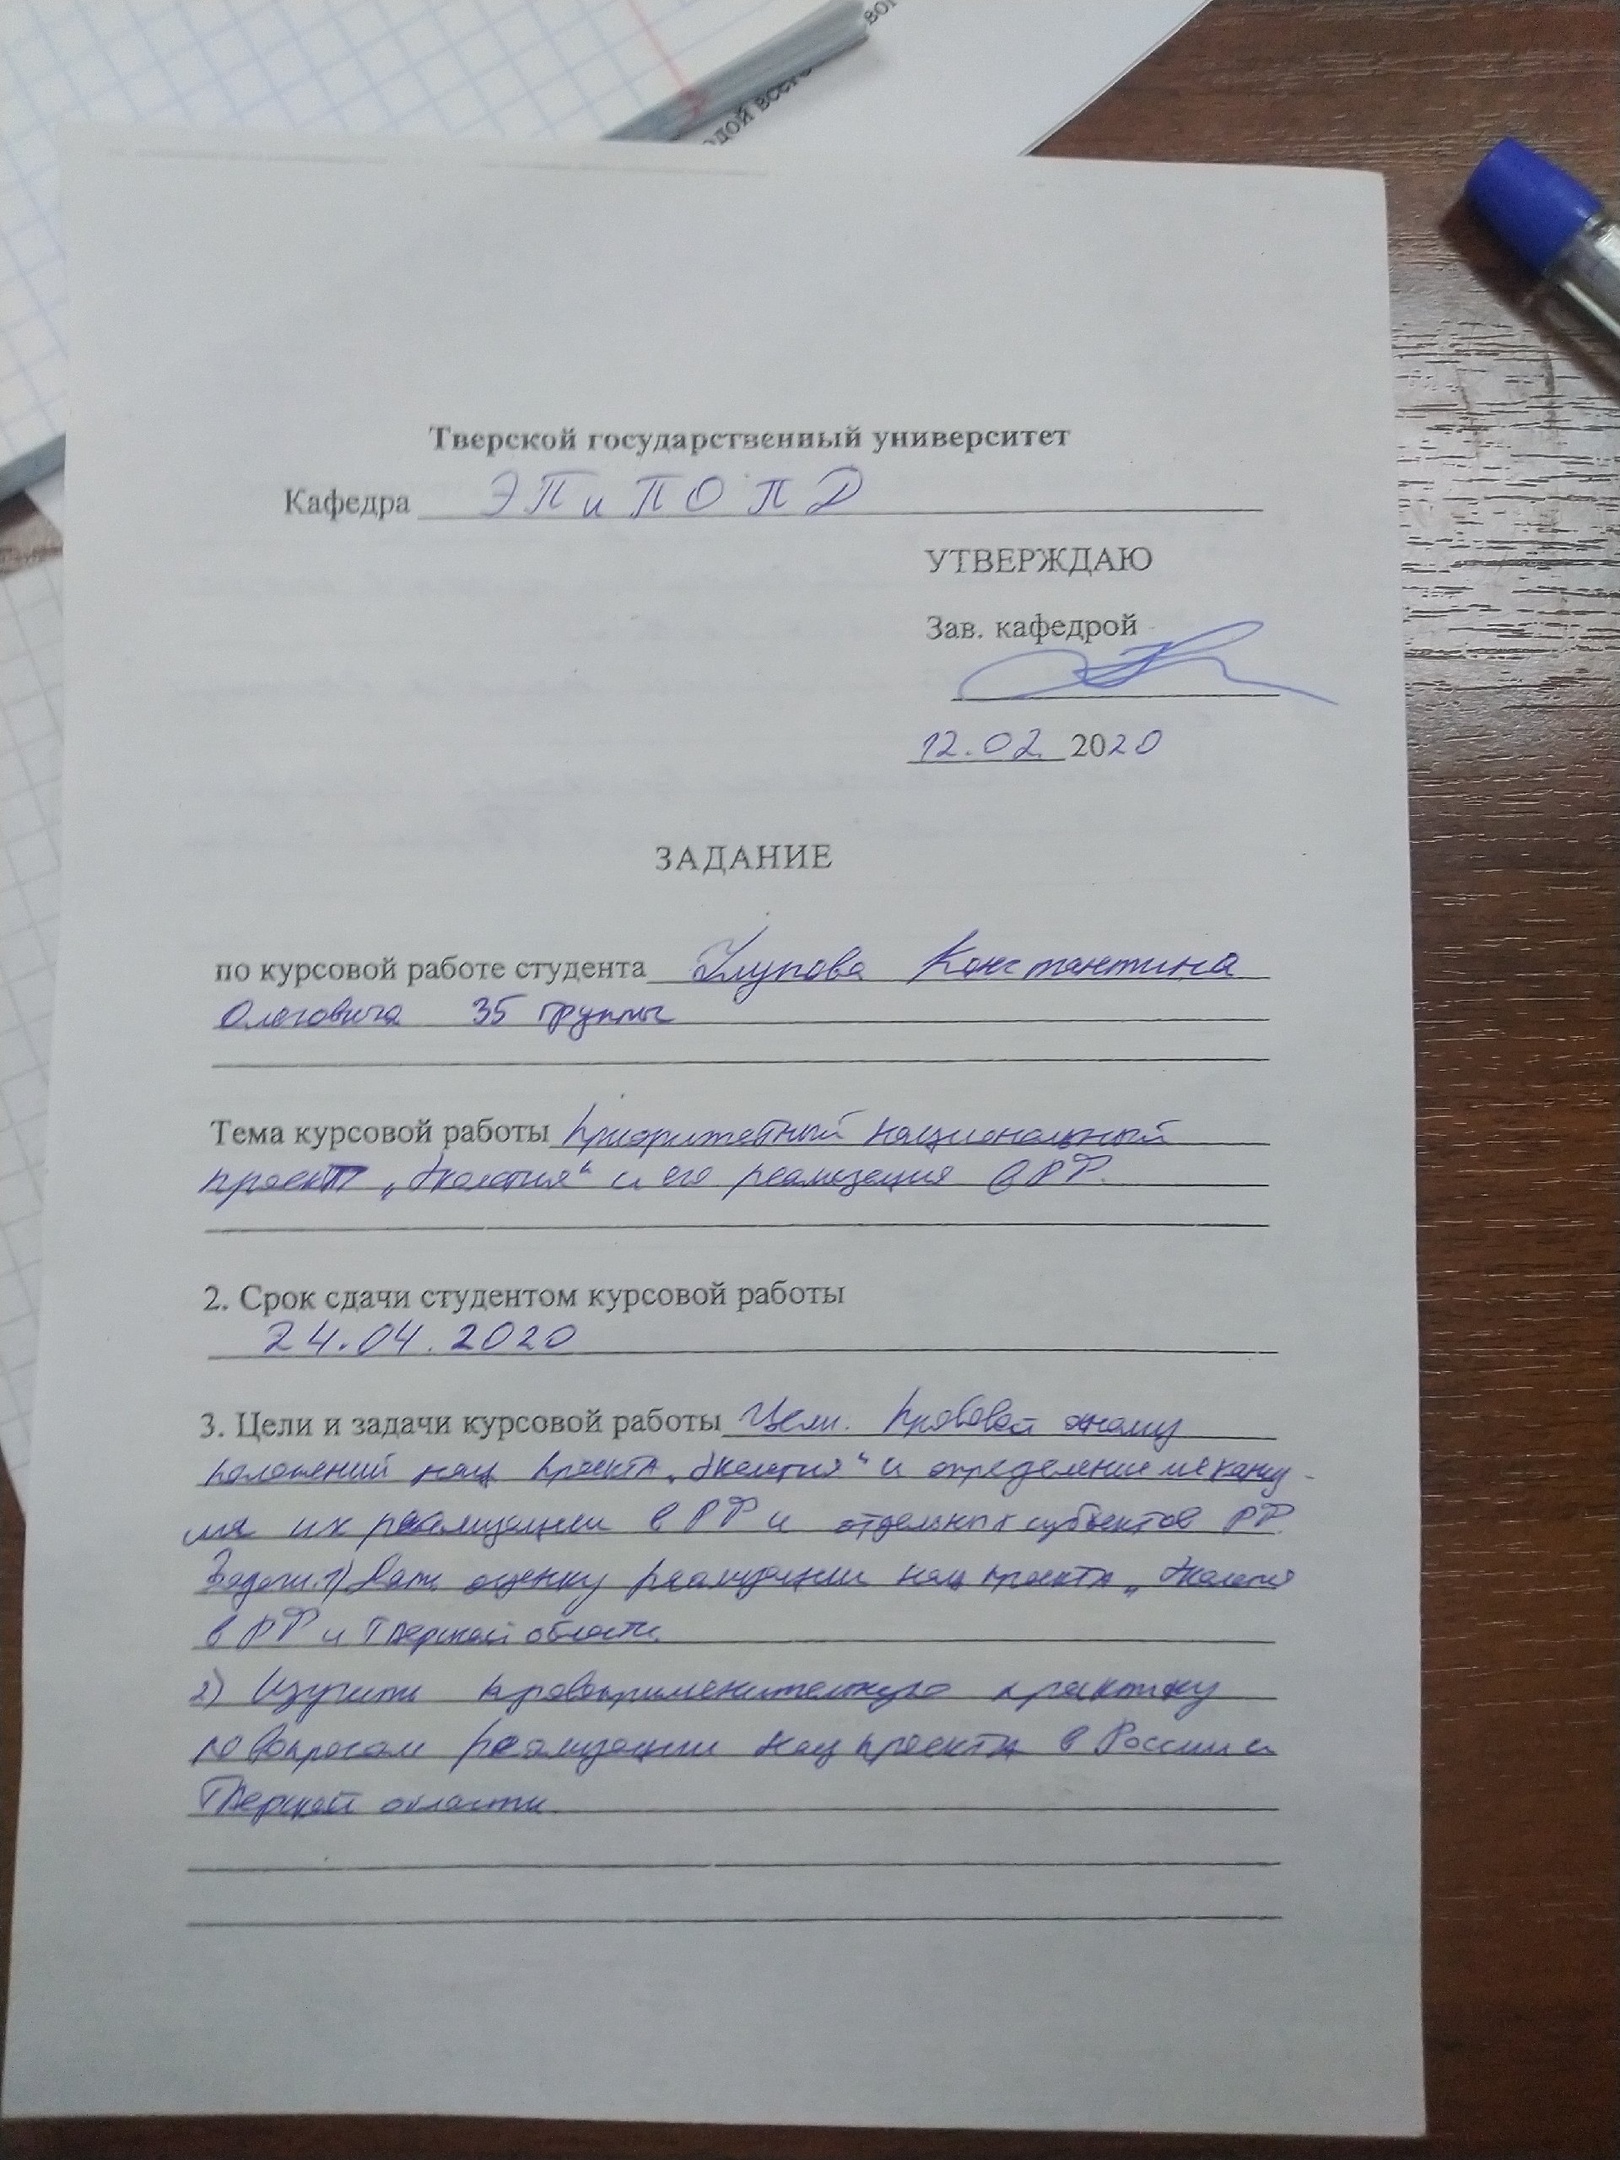 вог
одой всего
Тверской государственный университет
Кафедра ЭП и ПОПД
УТВЕРЖДАЮ
Зав. кафедрой
12.02. 2020
ЗАДАНИЕ
по курсовой работе студента Константина
Олеговича 35 группы
Тема курсовой работы Приоритетный национальный
проект „Экология“ и его реализация в РФ.
2. Срок сдачи студентом курсовой работы
24.04.2020
3. Цели и задачи курсовой работы Цели. Правовой анализ
положений нац проекта „Экология“ и определение механиз-
ма их реализации в РФ и отдельных субъектов РФ.
Задачи. 1) Дать оценку реализации нац проекта „Экология
в РФ и Тверской области.
2) Изучить правоприменительную практику
по вопросам реализации нац проекта в России и
Тверской области.